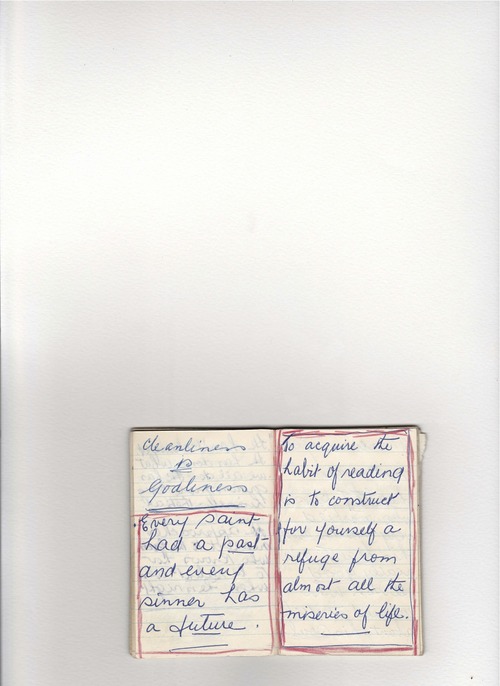 cleanliness
is
Godliness
Every saint
had a past
and every
sinner has
a future.
To acquire the
habit of reading
is to construct
for yourself a
refuge from
almost all the
miseries of life.